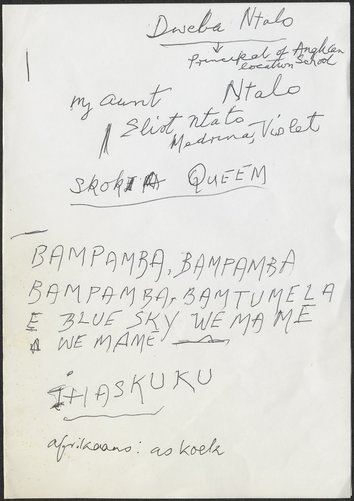 Dweba Ntalo
Principal of Anglican
location School
my aunt Ntalo
Eliot Ntato
Medrina, Violet
SKOKIA QUEEM
BAMPAMBA, BAMPAMBA
BAMPAMBA, BAMTUMELA
E BLUE SKY WE MA ME
A WE MAME
ITHASKUKU
afrikaans: as koek